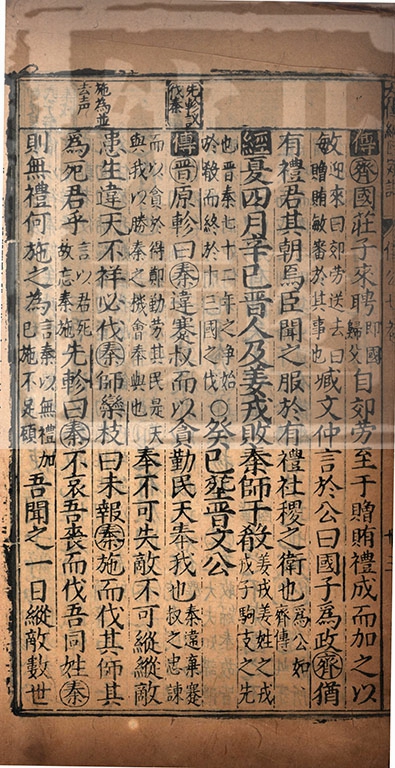 傳齊國莊子來聘即國歸父自郊勞至于贈賄禮成而加之以
敏迎來曰郊勞送去曰贈賄敏審於其事也臧文仲言於公曰國子爲政齊猶
有禮君其朝焉臣聞之服於有禮社稷之衛也爲公如齊傳
經夏四月辛巳晋人及姜戎敗秦師于殽姜戎姜姓之戎戎子駒支之先
也晋秦七十二年之争始於殽而終於十三國之伐○癸巳塟晋文公
先軫伐秦
傳晋原軫曰秦違蹇叔而以貪勤民天奉我也秦違棄蹇叔之忠諫
而以貪於得鄭勤勞其民是天與我以勝秦之機會奉與也奉不可失敵不可縱縱敵
患生違天不祥必伐秦師欒枝曰未報秦施而伐其師其
施爲並去声
爲死君乎言以君死故忘秦施先軫曰秦不哀吾喪而伐吾同姓秦
則無禮何施之爲言秦以無禮加已施不足顧吾聞之一日縱敵數世